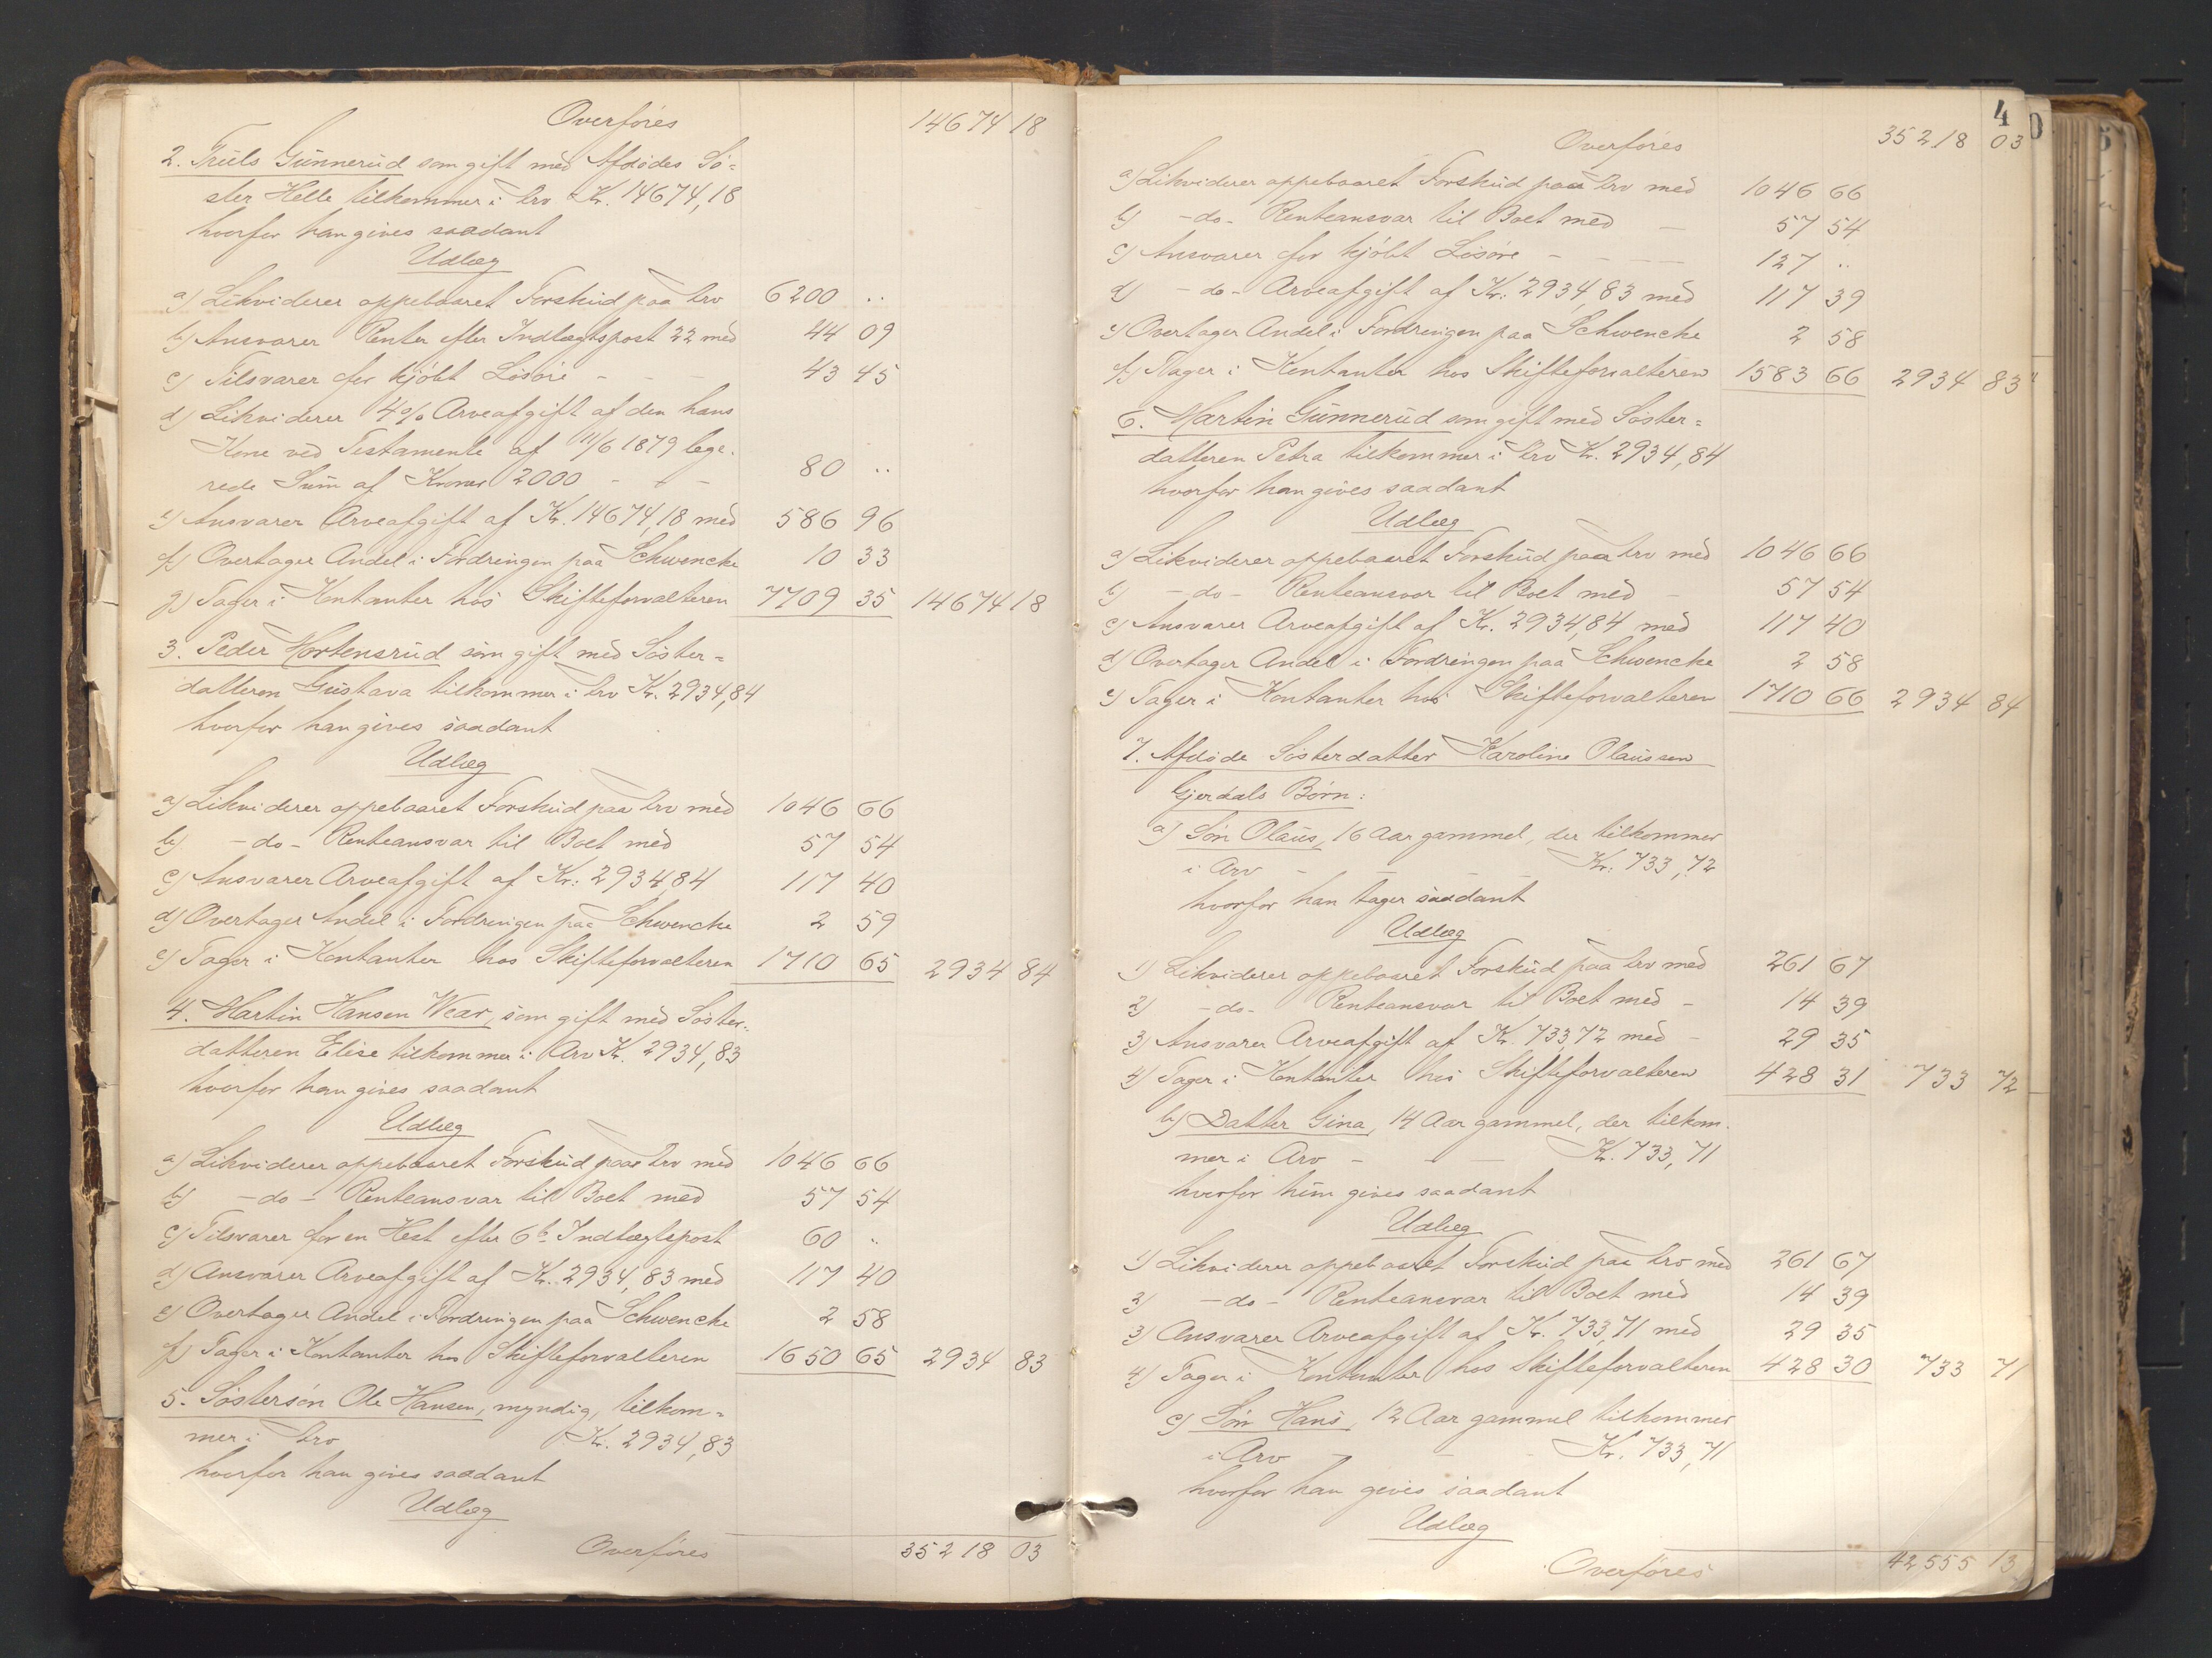 Overføres 14674 18
2. Truls Gunnerud som gift med Afdødes Sø-
ster Helle tilkommer i Arv Kr. 14674,18
hvorfor han gives saadant
Udlæg
a) Likviderer oppebaaret Forskud paa Arv 6200 ..
b) Ansvarer Renter efter Indtægtspost 22 med 44 09
c) Tilsvarer for kjøbt Løsøre - - - 43 45
d) Likviderer 4% Arveafgift af den hans
Kone ved Testamente af 11/6 1879 lege-
rede Sum af Kroner 2000 - - - 80 ..
e) Ansvarer Arveafgift af Kr. 14674,18 med 586 96
f) Overtager Andel i Fordringen paa Schwencke 10 33
g) Tager i Kontanter hos Skifteforvalteren 7709 35 14674 18
3. Peder Mortensrud som gift med Søster=
datteren Gustava tilkommer i Arv Kr. 2934,84
hvorfor han gives saadant
Udlæg
a) Likviderer oppebaaret Forskud paa Arv med 1046 66
b) -do- Renteansvar til Boet med 57 54
c) Ansvarer Arveafgift af Kr. 2934,84 117 40
d) Overtager Andel i Fordringen paa Schwencke 2 59
e) Tager i Kontanter hos Skifteforvalteren 1710 65 2934 84
4. Martin Hansen Wear, som gift med Søster-
datteren Elise tilkommer i Arv Kr. 2934,83
hvorfor han gives saadant
Udlæg
a) Likviderer oppebaaret Forskud paa Arv med 1046 66
b) -do- Renteansvar til Boet med 57 54
c) Tilsvarer for en Hest efter 6b Indtægtspost 60 ..
d) Ansvarer Arveafgift af Kr. 2934,83 med 117 40
e) Overtager Andel i Fordringen paa Schwencke 2 58
f) Tager i Kontanter hos Skifteforvalteren 1650 65 2934 83
5. Søstersøn Ole Hansen, myndig, tilkom-
mer i Arv Kr. 2934,83
hvorfor han gives saadant
Udlæg
Overføres 35218 03
4
Overføres 35218 03
a) Likviderer oppebaaret Forskud paa Arv med 1046 66
b) -do- Renteansvar til Boet med - 57 54
c) Ansvarer for kjøbt Løsøre - - - - 127 ..
d) -do- Arveafgift af Kr. 2934,83 med 117 39
e) Overtager Andel i Fordringen paa Schwencke 2 58
f) Tager i Kontanter hos Skifteforvalteren 1583 66 2934 83
6. Martin Gunnerud som gift med Søster=
datteren Petra tilkommer i Arv Kr. 2934,84
hvorfor han gives saadant
Udlæg
a) Likviderer oppebaaret Forskud paa Arv med 1046 66
b) -do- Renteansvar til Boet med - 57 54
c) Ansvarer Arveafgift af Kr. 2934,84 med 117 40
d) Overtager Andel i Fordringen paa Schwencke 2 58
e) Tager i Kontanter hos Skifteforvalteren 1710 66 2934 84
7. Afdøde Søsterdatter Karoline Olaussen
Gjerdals Børn:
a) Søn Olaus, 16 Aar gammel, der tilkommer
i Arv - - - Kr. 733,72
hvorfor han tager saadant
Udlæg
1) Likviderer oppebaaret Forskud paa Arv med 261 67
2) -do- Renteansvar til Boet med - 14 39
3) Ansvarer Arveafgift af Kr. 733,72 med - 29 35
4) Tager i Kontanter hos Skifteforvalteren 428 31 733 72
b) Datter Gina, 14 Aar gammel, der tilkom-
mer i Arv - - - Kr. 733,71
hvorfor hun gives saadant
Udlæg
1) Likviderer oppebaaret Forskud paa Arv med 261 67
2) -do- Renteansvar til Boet med 14 39
3) Ansvarer Arveafgift af Kr. 733,71 med 29 35
4) Tager i Kontanter hos Skifteforvalteren 428 30 733 71
c) Søn Hans, 12 Aar gammel tilkommer
i Arv - - - Kr. 733,71
hvorfor han gives saadant
Udlæg
Overføres 42555 13